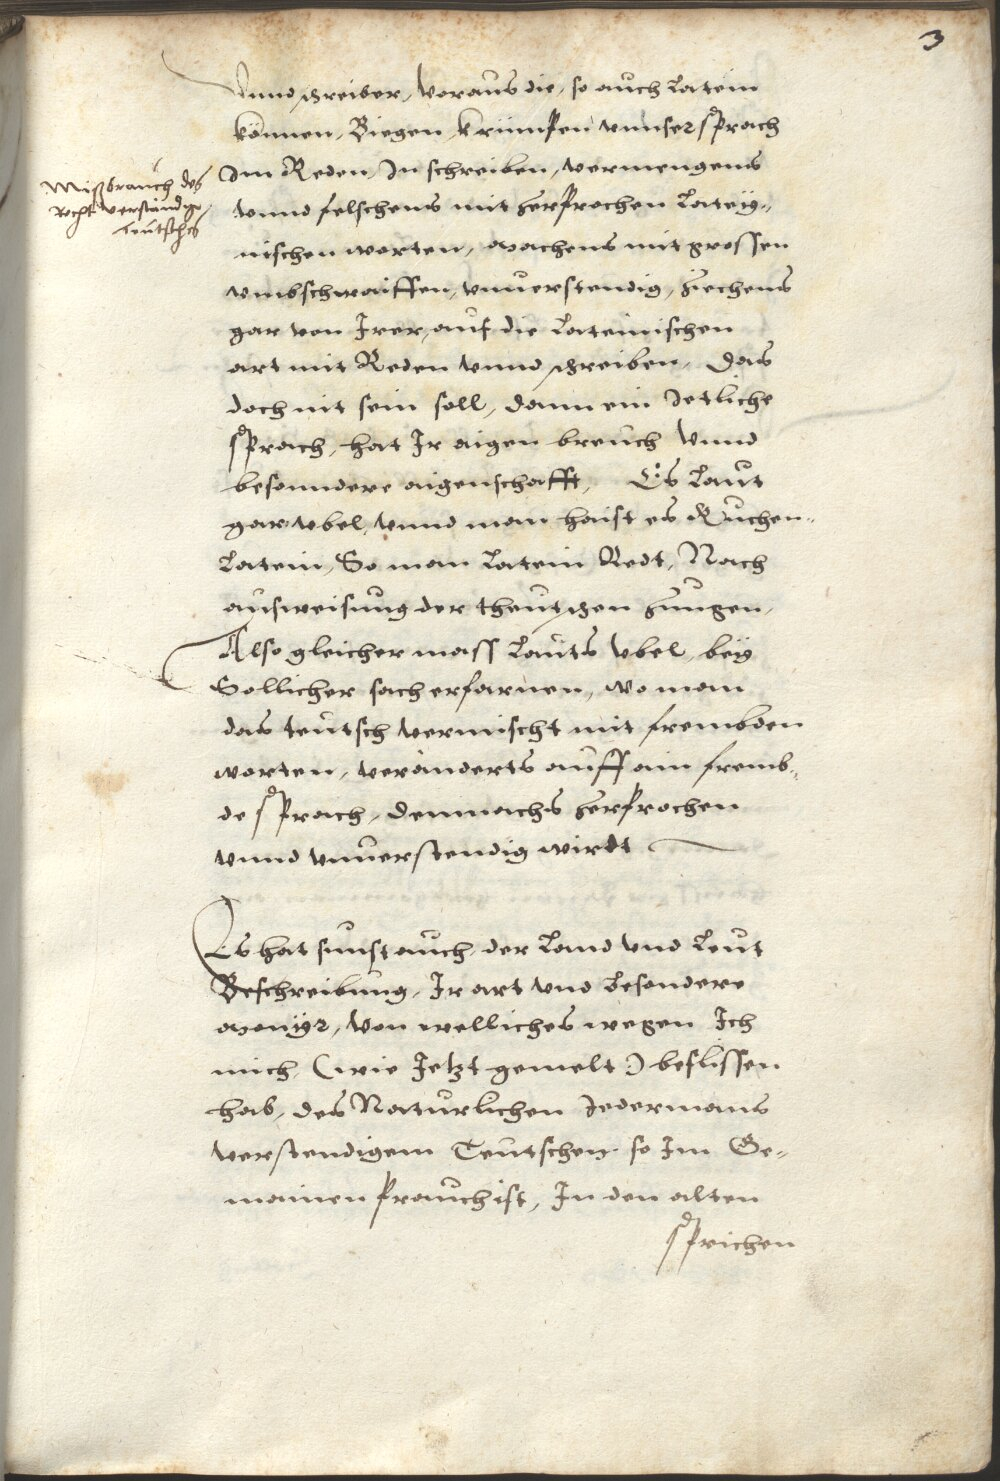 3
vnnd schreiber, voraus die, so auch Latein
können, Biegen, krümpen vnnser sprach
Im Reden, In schreiben, vermengens
Mißbrauch des
Recht verständige,
Teutsches
vnnd felschens mit zerprochen Lateÿ-
nischen worten, machens mit grossen
vmbschwaiffen, vnuerstendig, ziechens
gar von Irer, auf die Lateinischen
art mit Reden vnnd schreiben, Das
doch nit sein soll, dann ein Jetliche
sprach, hat Ir aigen breuch vnnd
besonndere aigenschafft, Es Laut
gar vbel, vnnd man haist es Kuchen-
Latein, So man Latein Redt, Nach
ausweisung der theutschen Zungen,
Also gleicher mass Lauts vbel, beÿ
Sollicher sach erfarnen, wo man
das teutsch vermischt mit frembden
worten, veränderts auff ain fremb-
de sprach, dennachs zerprochen
vnnd vnuerstendig wirdt
Es hat sunst auch, der Land vnd Leut
Beschreibung, Ir art vnd besondere
monÿr, Von welliches wegen Ich
mich, (wie Jetzt gemelt) beflissen
hab, des Naturlichen Jedermans
verstendigem Teutschen, so Im Ge-
mainen prauch ist, In den alten
sprichen